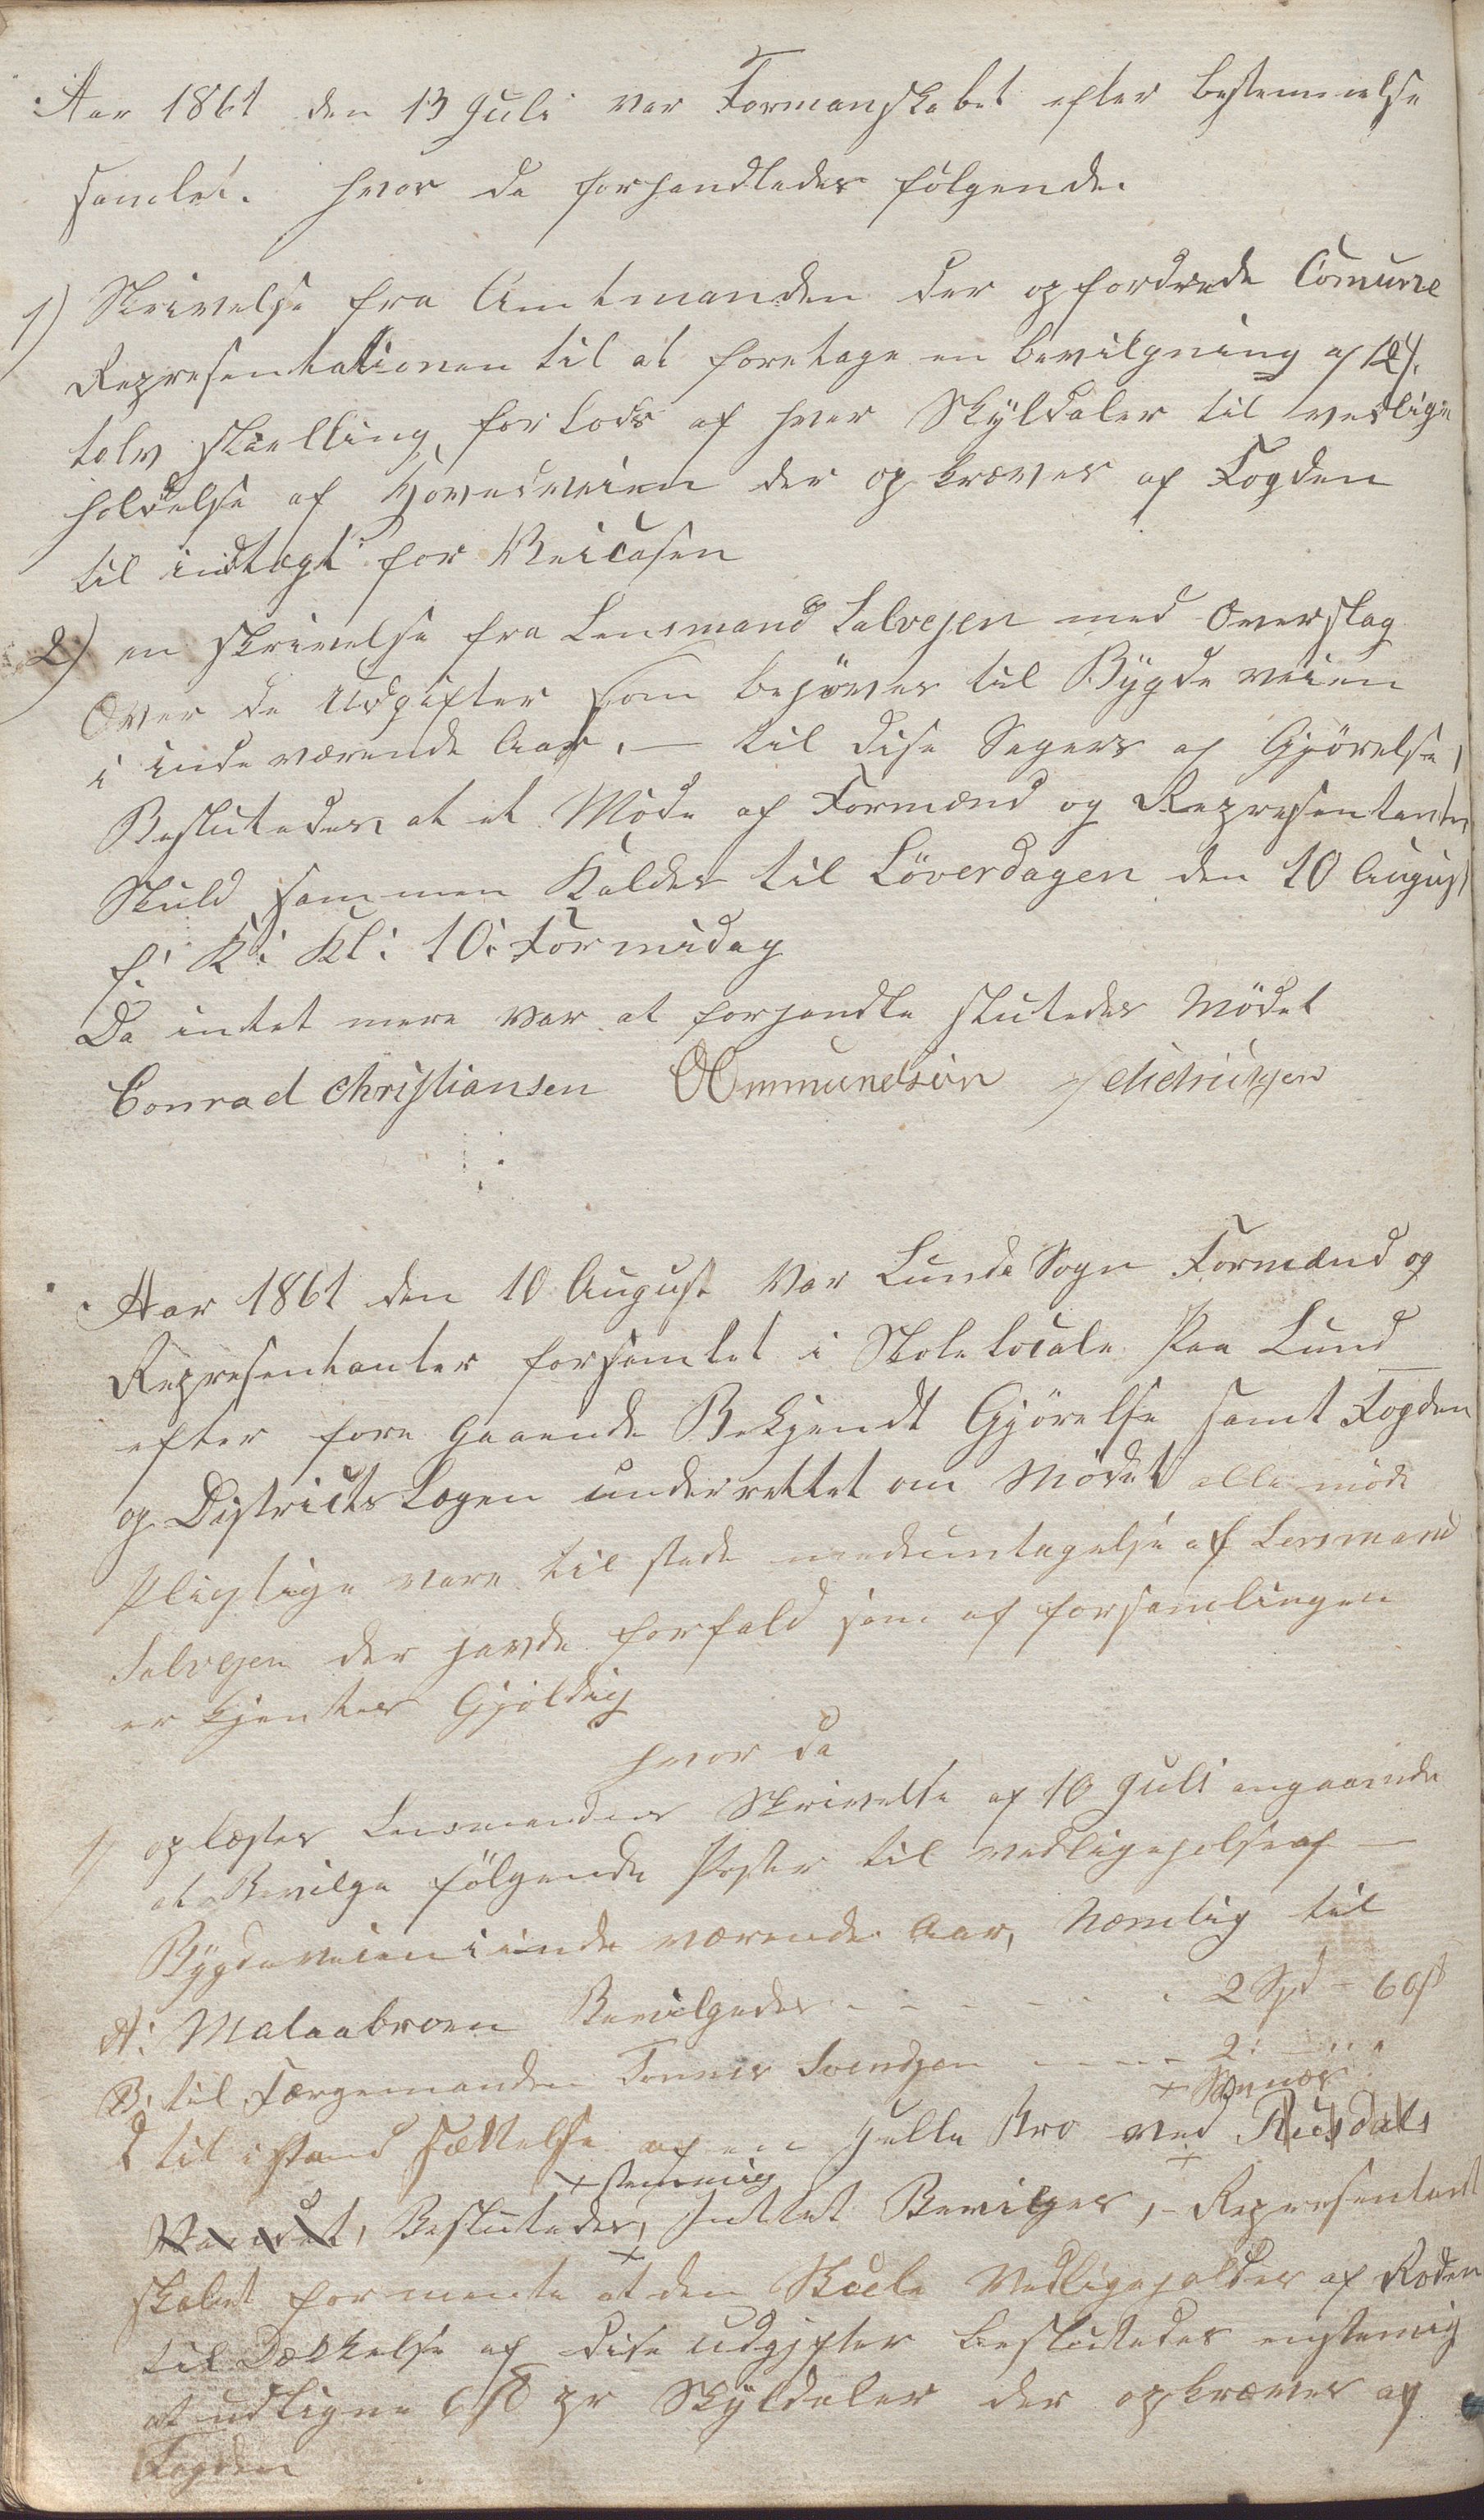 Aar 1861 den 13 Juli var Formanskabet efter bestemmelse
samlet. hvor da forhandledes følgende.
1) Skrivelse fra Amtmanden der opfordrede Comune
Repræsentationen til at foretage en bevilgning af 12 s.
tolv skielling forlods af hver Skyldaler til vedlige
holdelse af Hovedveien der opkræves af Fogden
til indtægt for Veicasen
2) en skrivelse fra Lensmand Salvesen med Overslag
Over de Udgifter som behøves til Bygde veien
i inde værende Aar. — til dise Sagers af Gjørelse,
Beslutedes at et Møde af Formænd og Representanter
Skuld sammen Kaldes til Løverdagen den 10 August
f: K: Kl: 10: Formidag
Da intet mere var at forhandle slutedes Mødet
Conrad Christiansen OOmmundsen J Didriksen
Aar 1861 den 10 August Var Lunde Sogn Formænd og
Representanter forsamlet i Skole locale Paa Lund
efter fore gaaende Bekjendt Gjørelse samt Fogden
og Districts Lægen underrettet om Mødet alle møde
pligtige vare til stede medundtagelse af Lensmand
Salvesen der havde forfald som af forsamlingen
er kjentes Gyoldig
hvor da
1) oplæstes Lensmandens Skrivelse af 10 Juli angaaende
at Bevilge følgende Poster til vedligeholdse af —
Bygdeveien i inde værende Aar, Nemlig til
A: Malaabroen Bevilgedes - - - - - 2 Spd - 60 s
B: til Færgemanden Tønnes Svendsen - - - - 2: — " "
til istand sættelse af en Helle Bro ved Ruesdals
Vandet, Beslutedes, Intet Bevilges, - Representant
skabet formente at den Skule Vedligeholdes af Roden
til Dækkelse af dise udgifter besluttedes enstemig
at udligne 6 s pr Skyldaler der opkræves af
Fogden